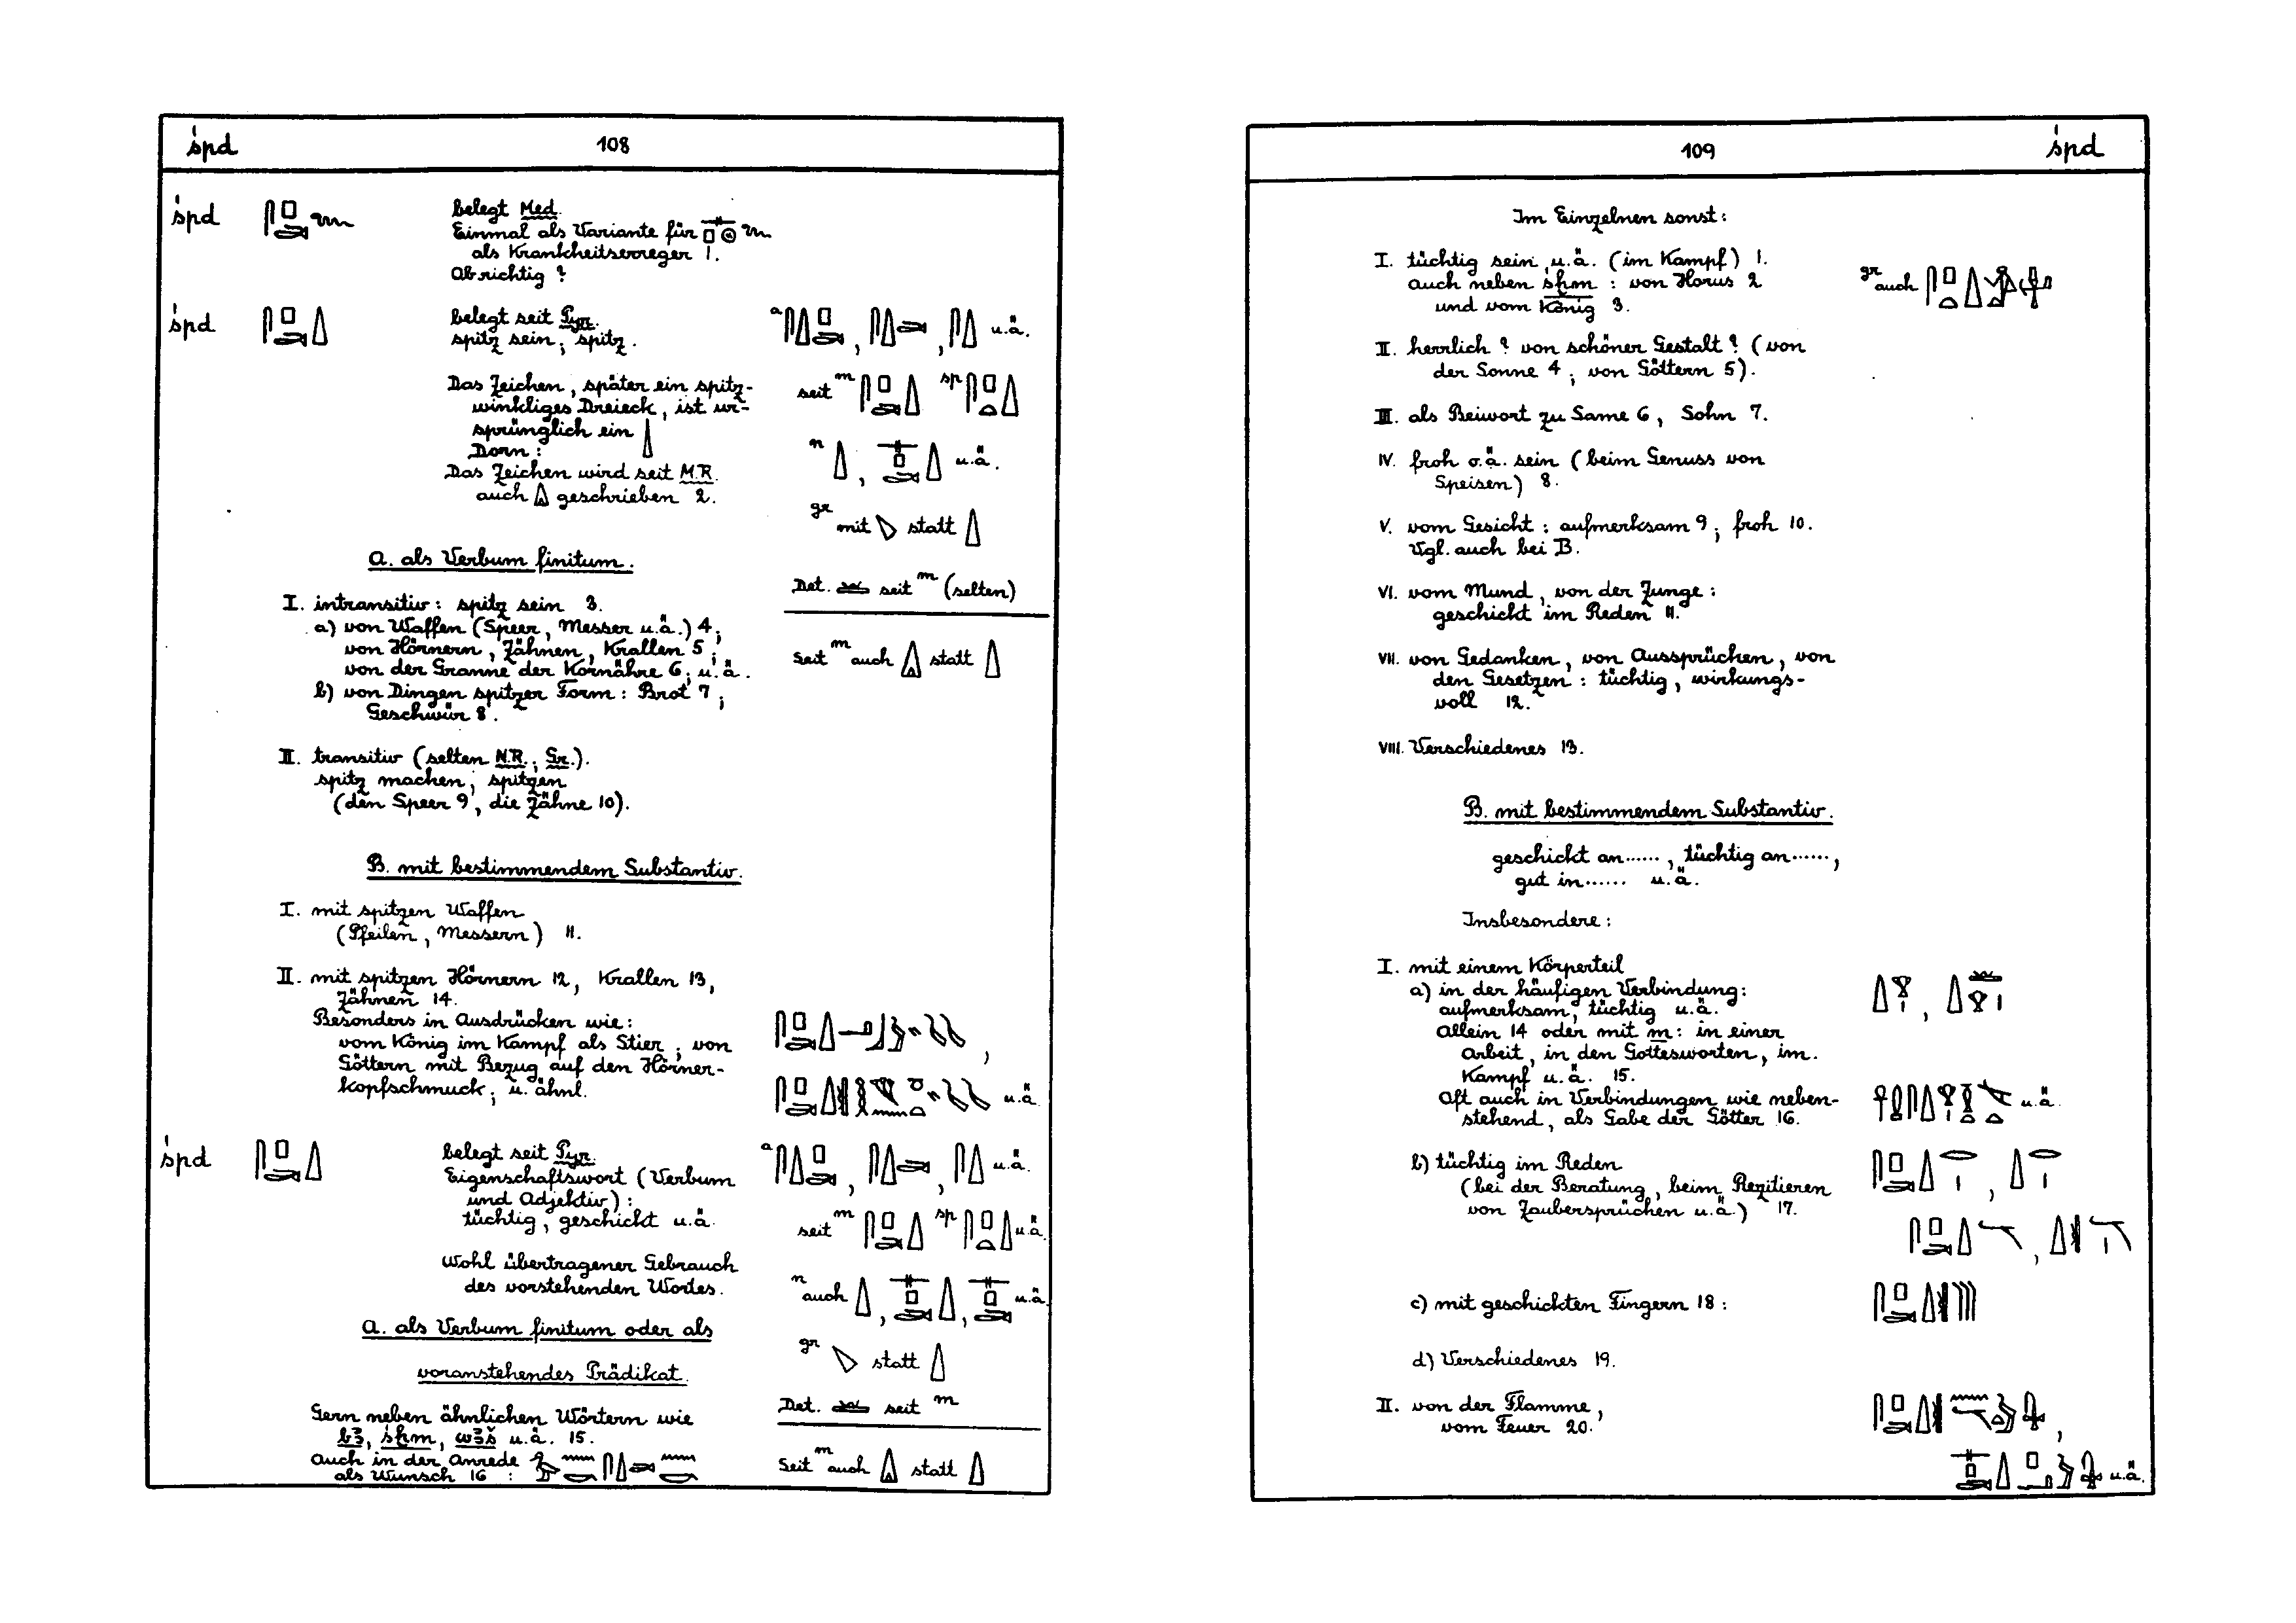 śpd 108
śpd belegt Med.
Einmal als Variante für
als Krankheitserreger 1.
Ob richtig ?
śpd belegt seit Pyr.
spitz sein; spitz.
a , , u.ä.
Das Zeichen, später ein spitz-
winkliges Dreieck, ist ur-
sprünglich ein
Dorn:
Das Zeichen wird seit M.R.
auch geschrieben 2.
seit m sp
n , u.ä.
gr mit statt
Det. seit m (selten)
Seit m auch statt
A. als Verbum finitum.
I. intransitiv: spitz sein 3.
a) von Waffen (Speer, Messer u.ä.) 4;
von Hörnern, Zähnen, Krallen 5;
von der Granne der Kornähre 6; u.ä.
b) von Dingen spitzer Form: Brot 7;
Geschwür 8.
II. transitiv (selten N.R.; Gr.).
spitz machen; spitzen
(den Speer 9, die Zähne 10).
B. mit bestimmendem Substantiv.
I. mit spitzen Waffen
(Pfeilen, Messern) 11.
II. mit spitzen Hörnern 12, Krallen 13,
Zähnen 14.
Besonders in Ausdrücken wie:
vom König im Kampf als Stier; von
Göttern mit Bezug auf den Hörner-
kopfschmuck; u. ähnl.
,
u.ä.
śpd belegt seit Pyr.
Eigenschaftswort (Verbum
und Adjektiv):
tüchtig, geschickt u.ä.
Wohl übertragener Gebrauch
des vorstehenden Wortes.
a , , u.ä.
seit m sp u.ä.
n auch , , u.ä.
gr statt
Det. seit m
Seit m auch statt
A. als Verbum finitum oder als
voranstehendes Prädikat.
Gern neben ähnlichen Wörtern wie
bꜣ, śḫm, wꜣš u.ä. 15.
Auch in der Anrede
als Wunsch 16 :
109 śpd
Im Einzelnen sonst:
I. tüchtig sein u.ä. (im Kampf) 1.
auch neben śḫm : von Horus 2
und vom König 3.
gr auch
II. herrlich ? von schöner Gestalt ? (von
der Sonne 4; von Göttern 5).
III. als Beiwort zu Same 6, Sohn 7.
IV. froh o.ä. sein (beim Genuss von
Speisen) 8.
V. vom Gesicht: aufmerksam 9; froh 10.
Vgl. auch bei B.
VI. vom Mund, von der Zunge:
geschickt im Reden 11.
VII. von Gedanken, von Aussprüchen, von
den Gesetzen: tüchtig, wirkungs-
voll 12.
VIII. Verschiedenes 13.
B. mit bestimmendem Substantiv.
geschickt an......, tüchtig an......,
gut in...... u.ä.
Insbesondere:
I. mit einem Körperteil
a) in der häufigen Verbindung:
aufmerksam, tüchtig u.ä.
Allein 14 oder mit m: in einer
Arbeit, in den Gottesworten, im
Kampf u.ä. 15.
Oft auch in Verbindungen wie neben-
stehend, als Gabe der Götter 16.
u.ä.
b) tüchtig im Reden
(bei der Beratung, beim Rezitieren
von Zaubersprüchen u.ä.) 17.
c) mit geschickten Fingern 18:
d) Verschiedenes 19.
II. von der Flamme,
vom Feuer 20.
,
u.ä.